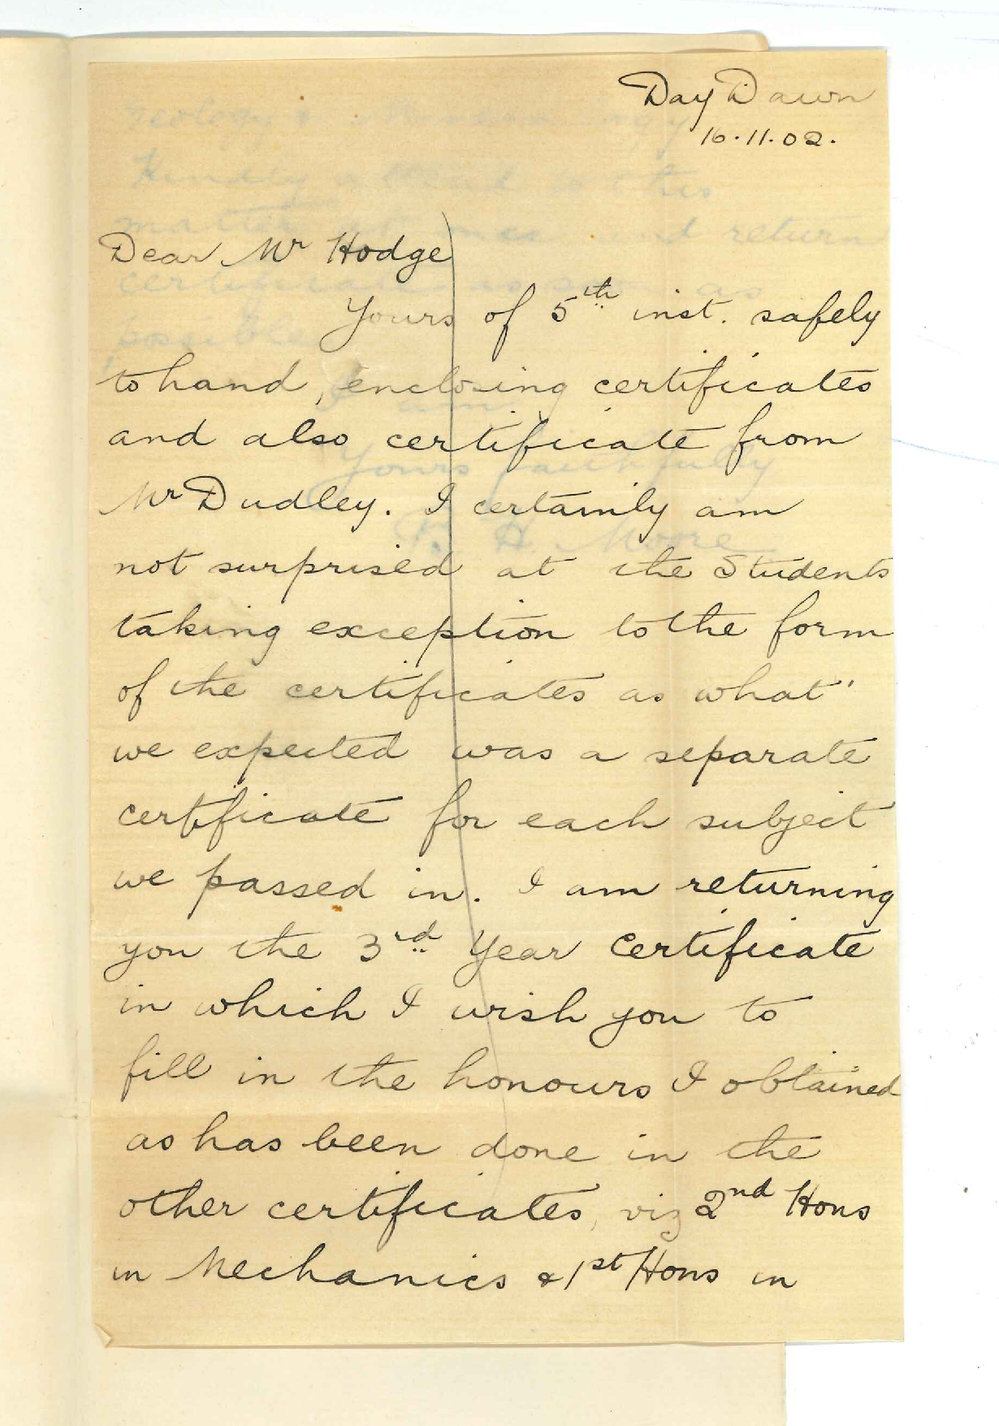 Day Dawn
16.11.02.
Dear Mr Hodge
Yours of 5th inst. safely
to hand, enclosing certificates
and also certificate from
Mr Dudley. I certainly am
not surprised at the Students
taking exception to the form
of the certificates as what
we expected was a separate
certificate for each subject
we passed in. I am returning
you the 3rd Year Certificate
in which I wish you to
fill in the honours I obtained
as has been done in the
other certificates, viz 2nd Hons
in Mechanics & 1st Hons in
geology &
Kindly attend to this
matter and return
certificate as soon as
possible
I am
Yours faithfully
B. H. Moore